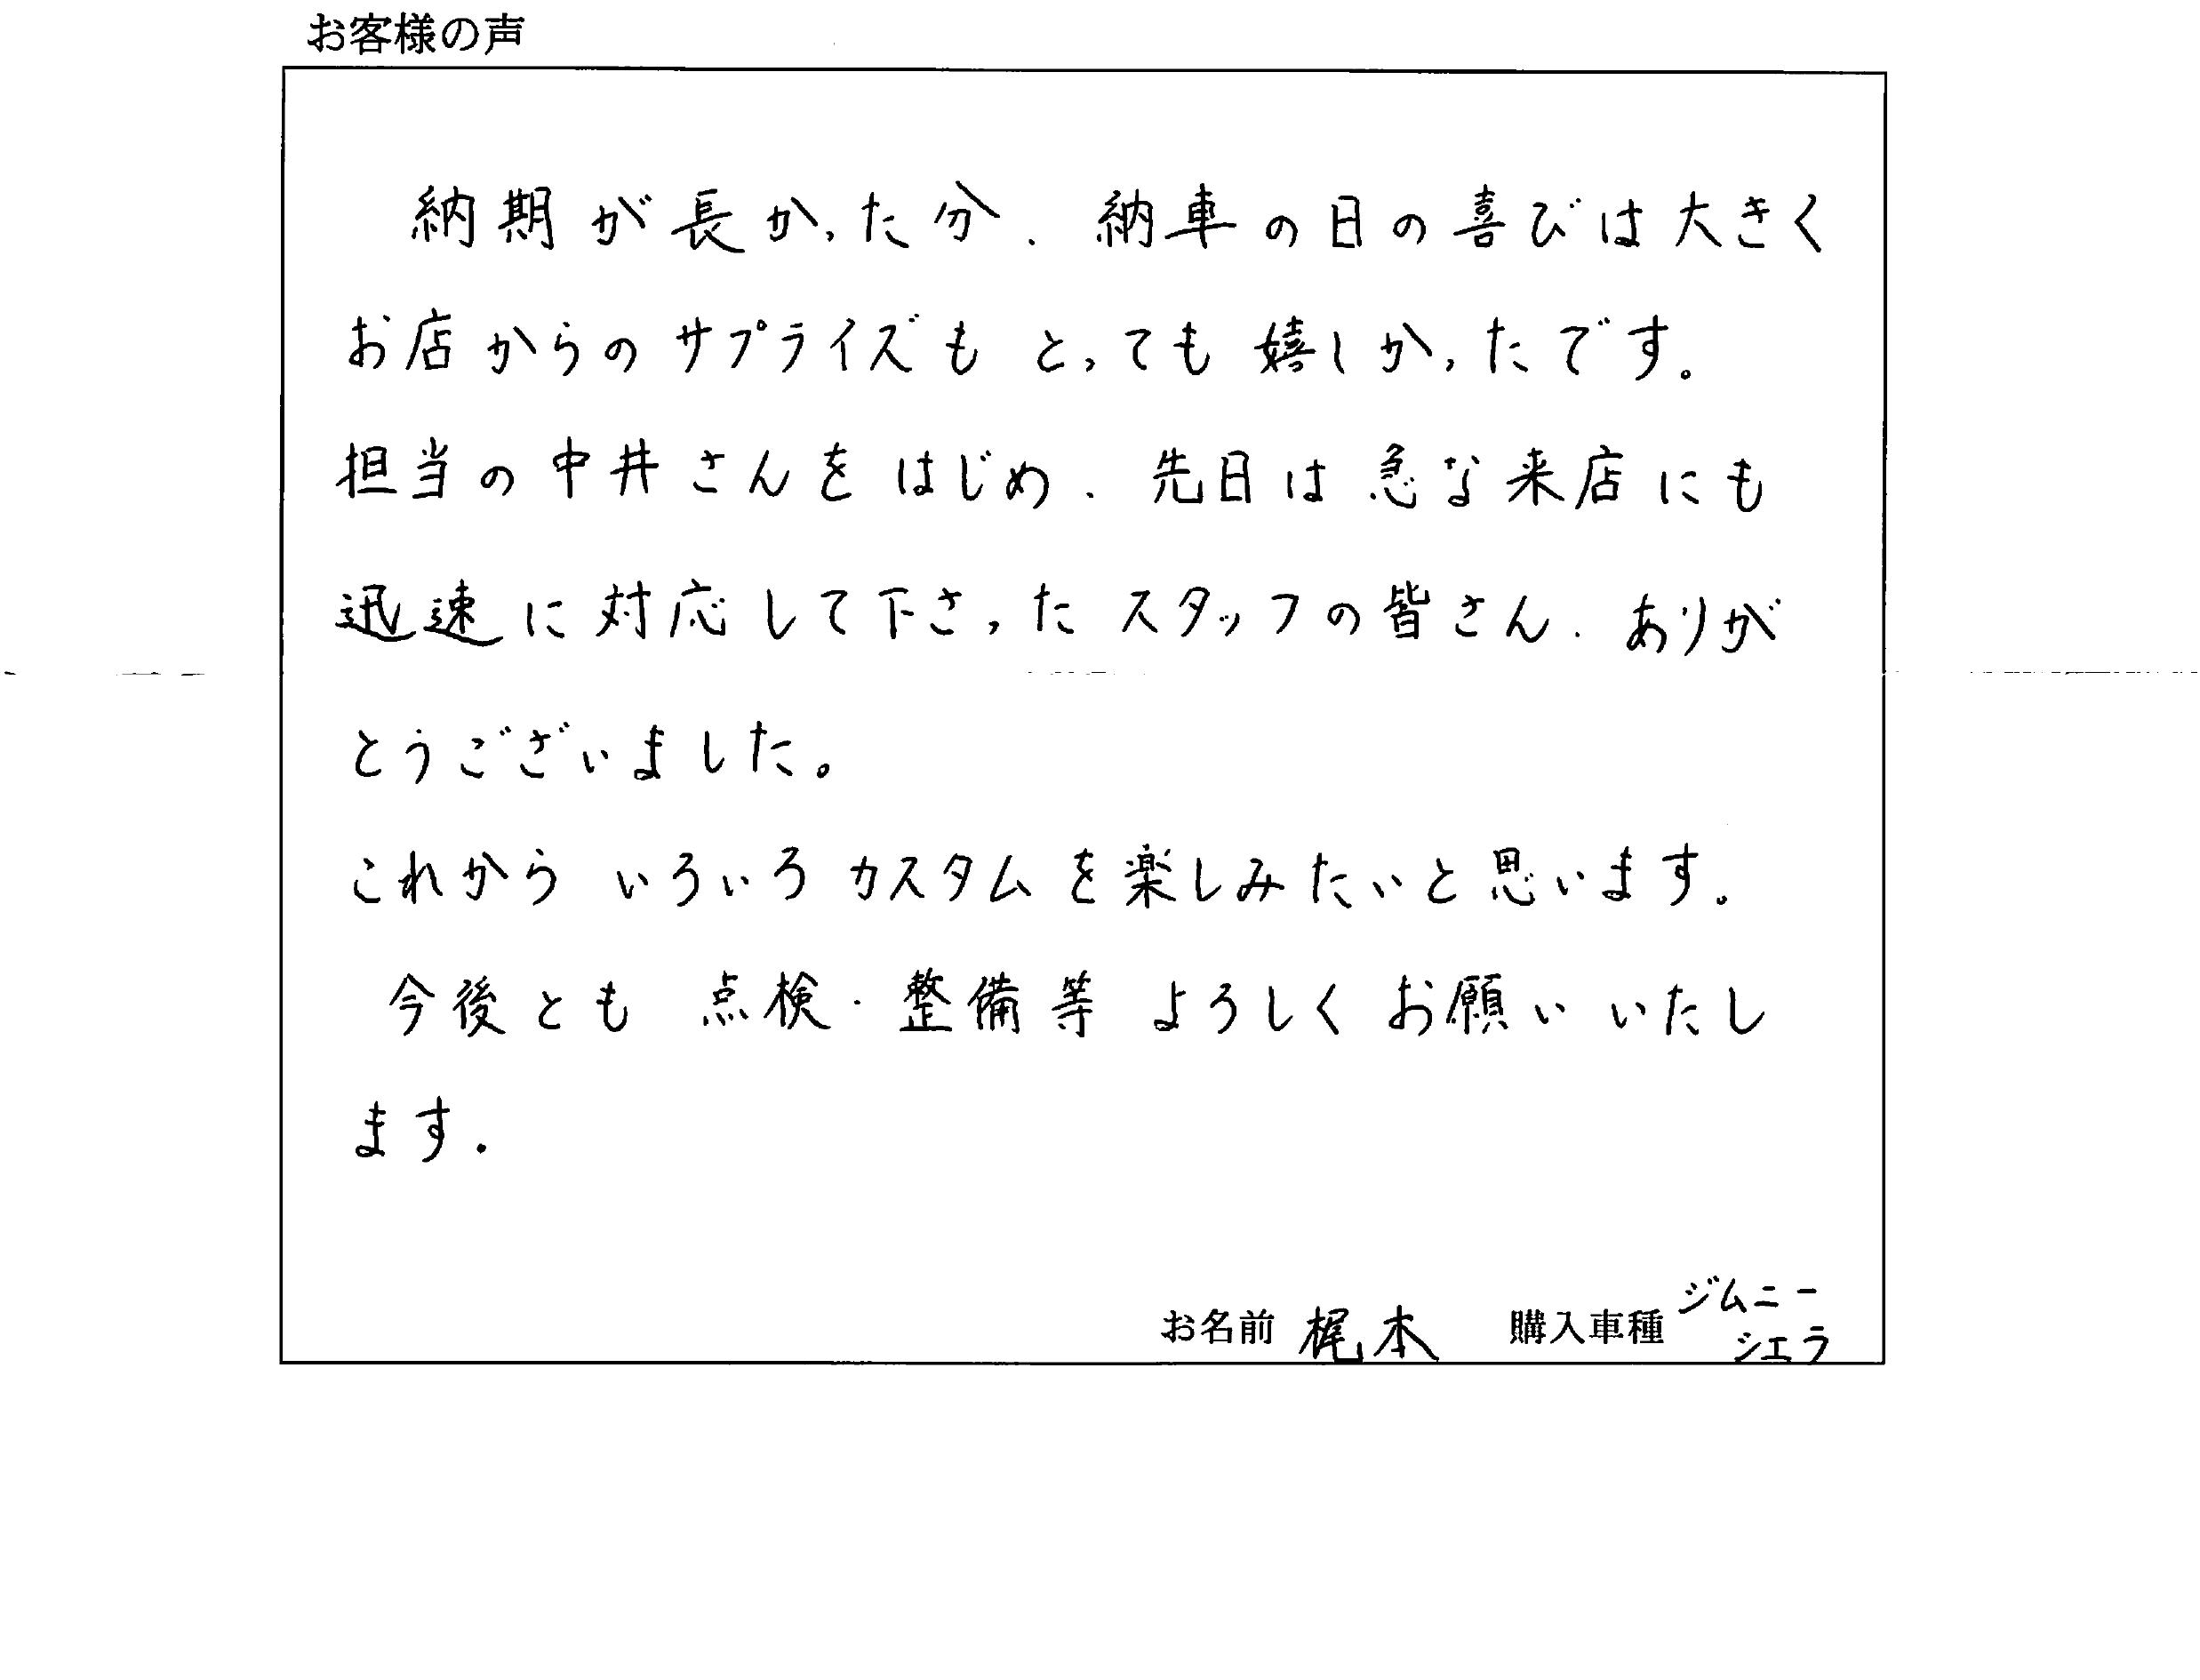 お客様の声
納期が長かった分、納車の日の喜びは大きく
お店からのサプライズもとっても嬉しかったです。
担当の中井さんをはじめ、先日は急な来店にも
迅速に対応して下さったスタッフの皆さん、ありが
とうございました。
これからいろいろカスタムを楽しみたいと思います。
今後とも点検・整備等よろしくお願いいたし
ます。
お名前 梶本 購入車種 ジムニー
シエラ